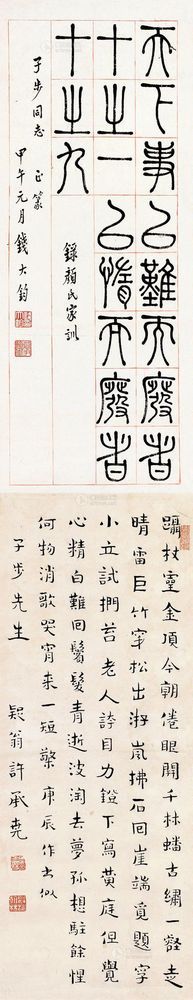 天下事以難而廢者
十之一以惰而廢者
十之九
錄顏氏家訓
子步同志 正篆
甲午元月錢大鈞
躡杖金頂今朝倦眼開千林蟠古繡一壑走
晴雷巨竹穿松出游嵐拂石回崖端覓題字
小立試捫苔 老人誇目力鐙下寫黃庭但覺
心精白難回鬢髮青逝波淘去夢孤想駐餘惺
何物消歌哭宵來一短檠 庚辰作出似
子步先生 疑翁許承堯